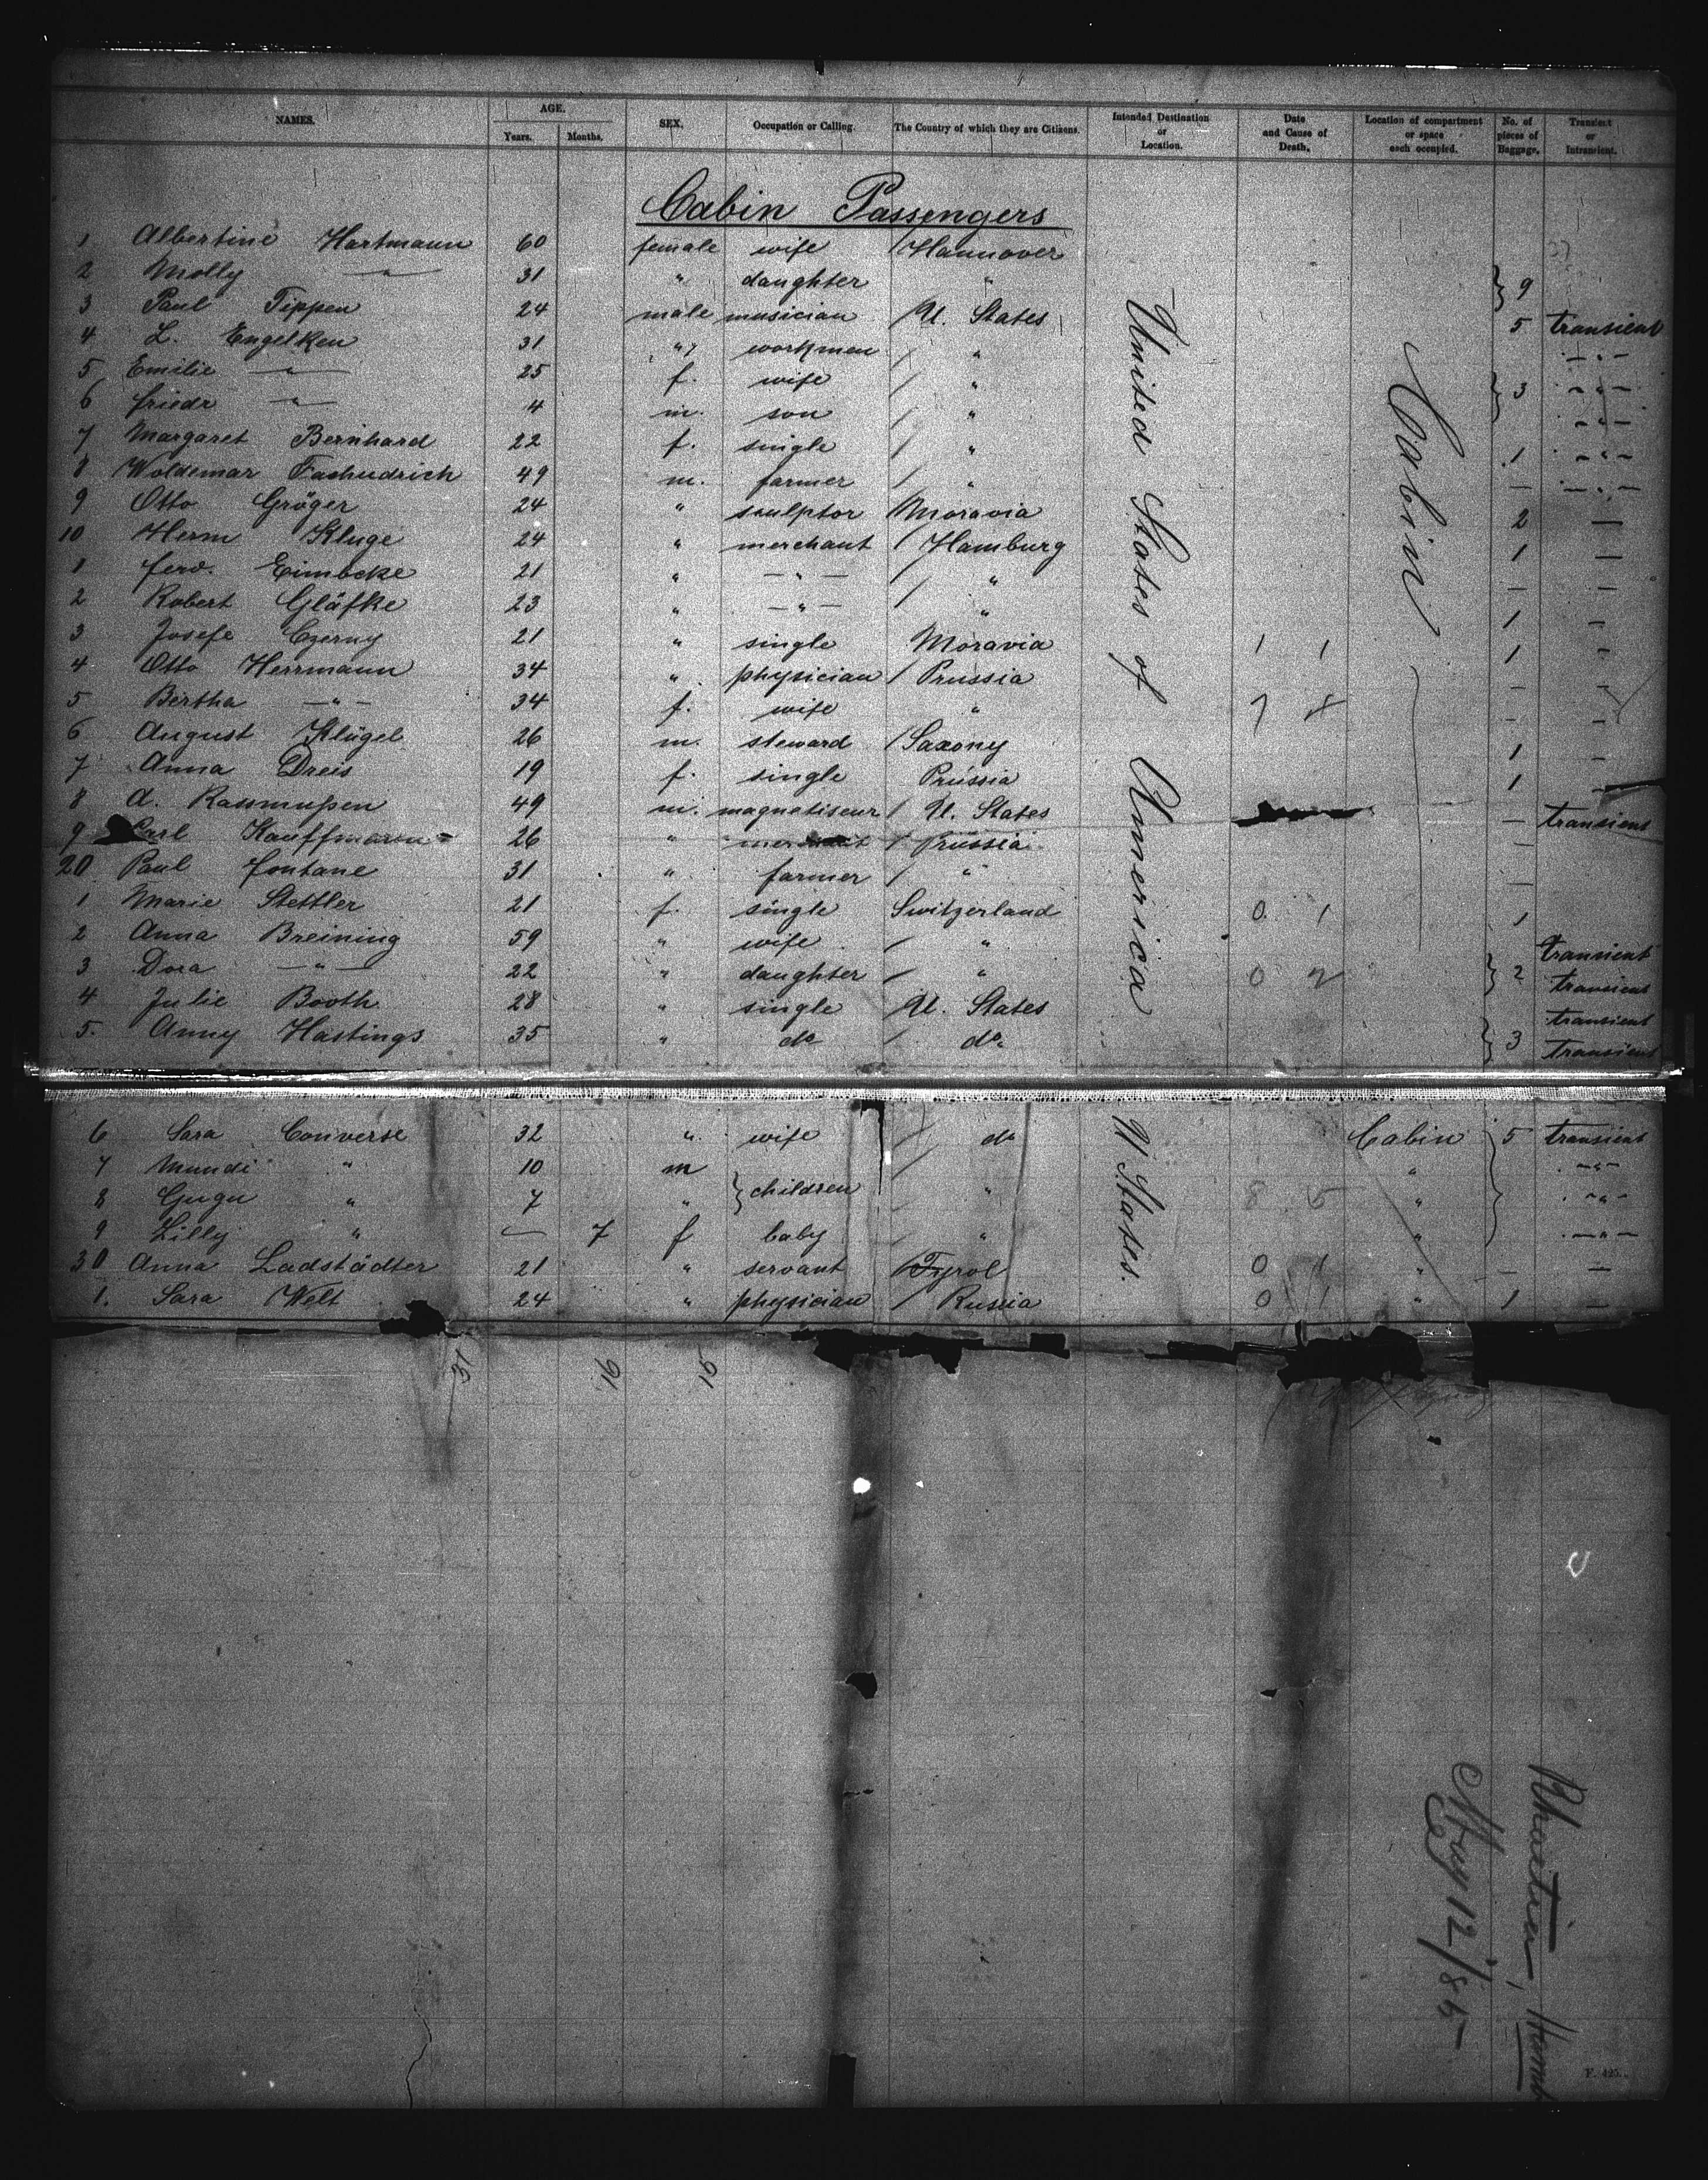 NAMES. AGE. Years. Months. SEX. Occupation or Calling. The Country of which they are Citizens. Intended Destination or Location. Date and Cause of Death. Location of compartment or space each occupied. No. of pieces of Baggage. Transient or Intransient.
Cabin Passengers
1 Albertine Hartmann 60 female wife / Hannover
2 Molly — " — 31 " daughter " } 9
3 Paul Tippen 24 male musician / U. States 5 transient
4 L. Engelken 31 " workman / " — " —
5 Emilie — " — 25 f. wife / " } 3 — " —
6 friedr — " — 4 m. son / " — " —
7 Margaret Bernhard 22 f. single / " 1 — " —
8 Woldemar 49 m. farmer / " — — " —
9 Otto Gröger 24 " sculptor / Moravia 2 —
10 Herm Kluge 24 " merchant / Hamburg 1 —
1 ferd. Eimbcke 21 " — " — / " — —
2 Robert Gläfke 23 " — " — / " 1 —
3 Josefe Czerny 21 " single Moravia 1 1 1 -
4 Otto Herrmann 34 " physician / Prussia — -
5 Bertha — " — 34 f. wife " — -
6 August Klügel 26 m. steward / Saxony 1 -
7 Anna Dreis 19 f. single Prussia 1 -
8 A. Rassmußen 49 m. magnetiseur / U. States — transient
9 Carl Kauffmann 26 " merchant / Prussia —
20 Paul fontane 31 " farmer / " —
1 Marie Stettler 21 f. single Switzerland 0 1 1
2 Anna Breining 59 " wife / " transient
3 Dora — " — 22 " daughter / " 0 2 } 2 transient
4 Julie Booth 28 " single U. States transient
5. Anny Hastings 35 " do / do. } 3 transient
United States of America
Cabin
6 Sara Converse 32 " wife / do Cabin 5 transient
7 Mundi " 10 m } children / " — " —
8 Gugu " 7 " " 8 5 " — " —
9 Lilly " — 7 f baby / " " — " —
30 Anna Ladstädter 21 " servant / Tyrol 0 1 " — —
1. Sara Welt 24 " physician / Russia 0 1 " 1 —
U. States.
31 16 16
Rhaetia, Hamb
May 12/85
F. 425.